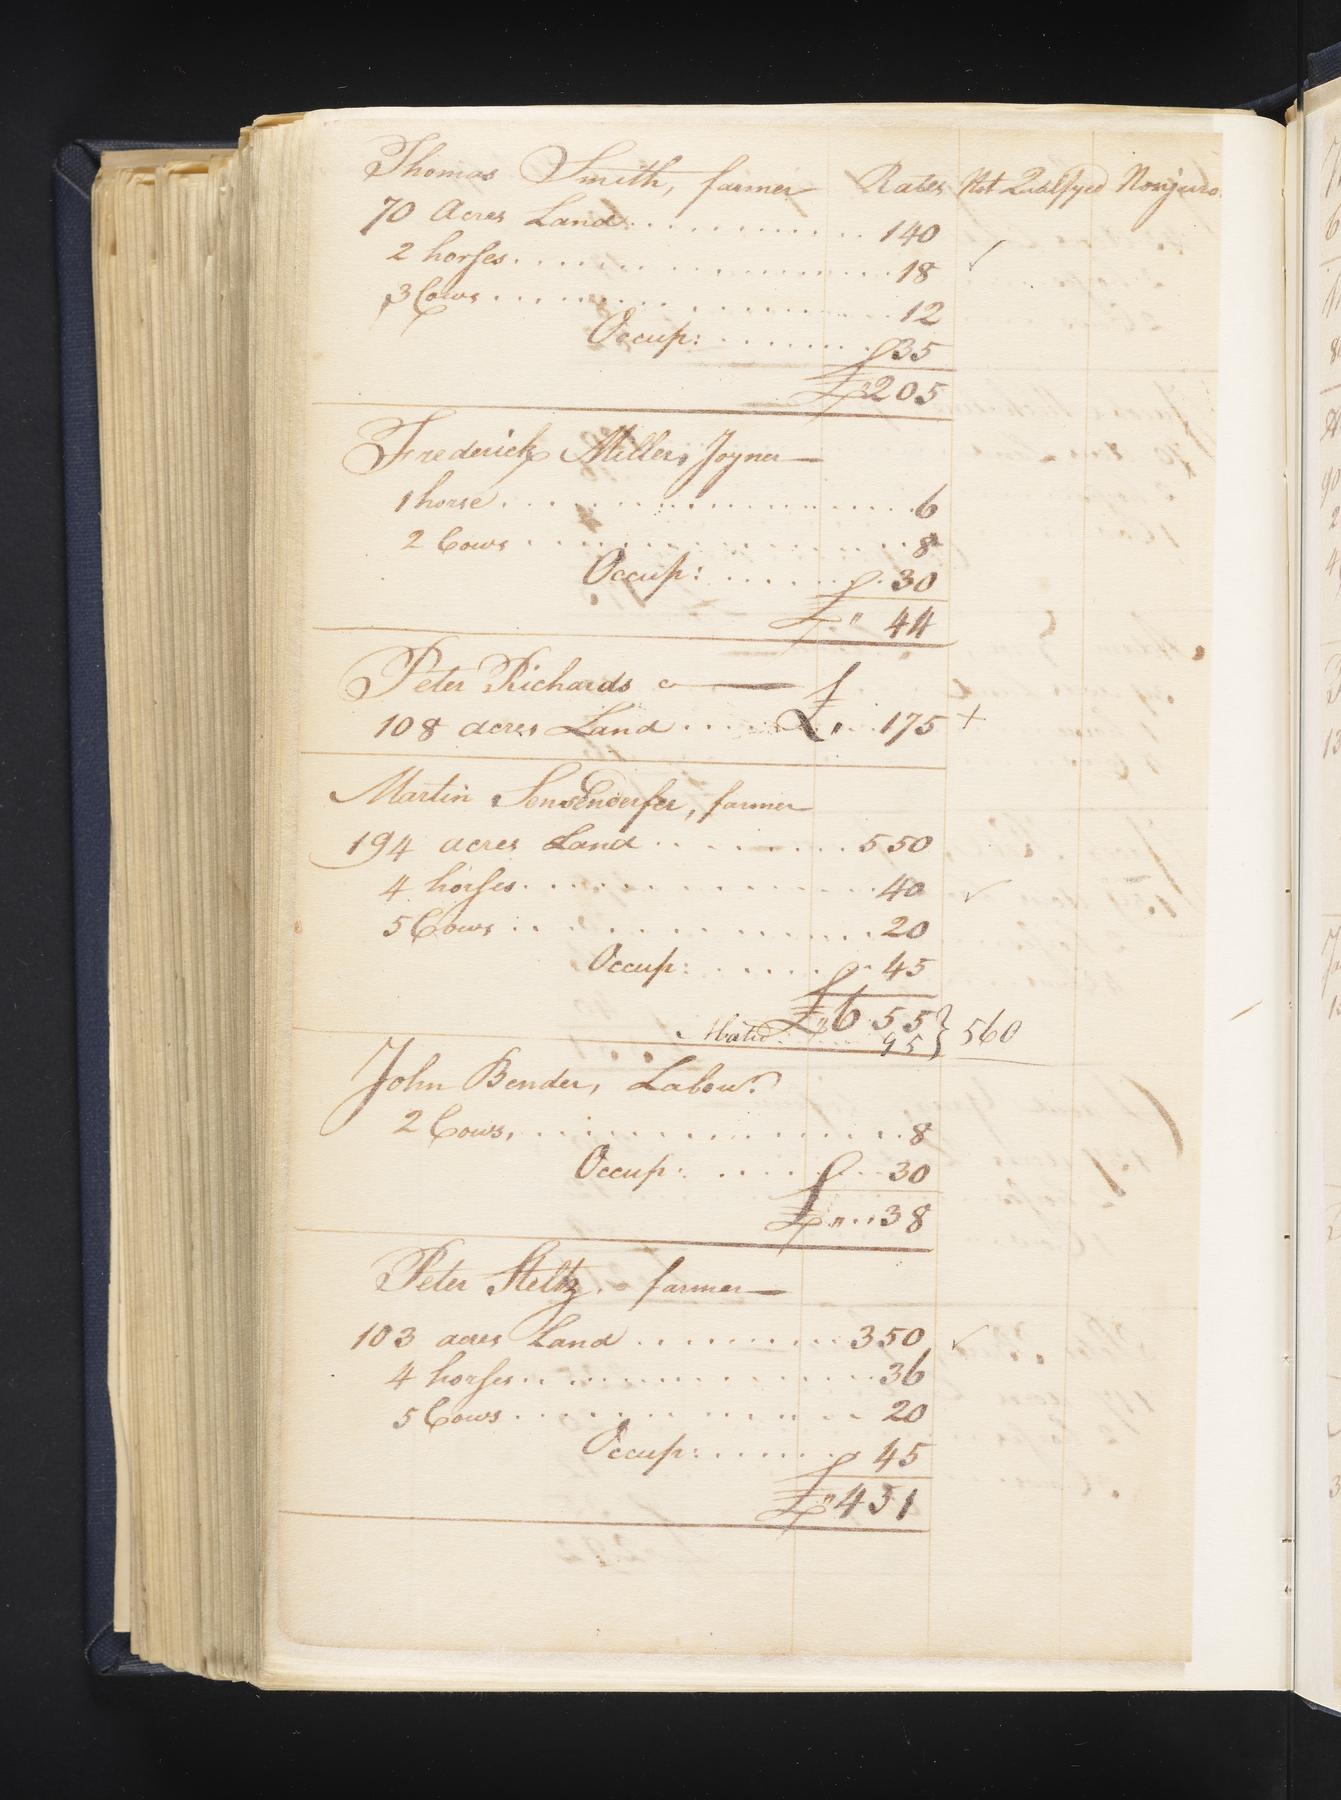 Thomas Smith, farmer Rates Not Qualifyed Nonjuro
70 Acres Land 140
2 horses 18 ✓
3 Cows 12
Occup: 35
£ 205
Frederick Miller, Joyner
1 horse 6
2 Cows 8
Occup: 30
£ " 44
Peter Richards
108 acres Land £ " 175 +
Martin Sensenderfer, farmer
194 acres Land 550
4 horses 40 ✓
5 Cows 20
Occup: 45
£ " 655
Abated 95 } 560
John Bender, Labour.
2 Cows, 8
Occup: 30
£ " 38
Peter Steltz, farmer
103 acres Land 350 ✓
4 horses 36
5 Cows 20
Occup: 45
£ " 451